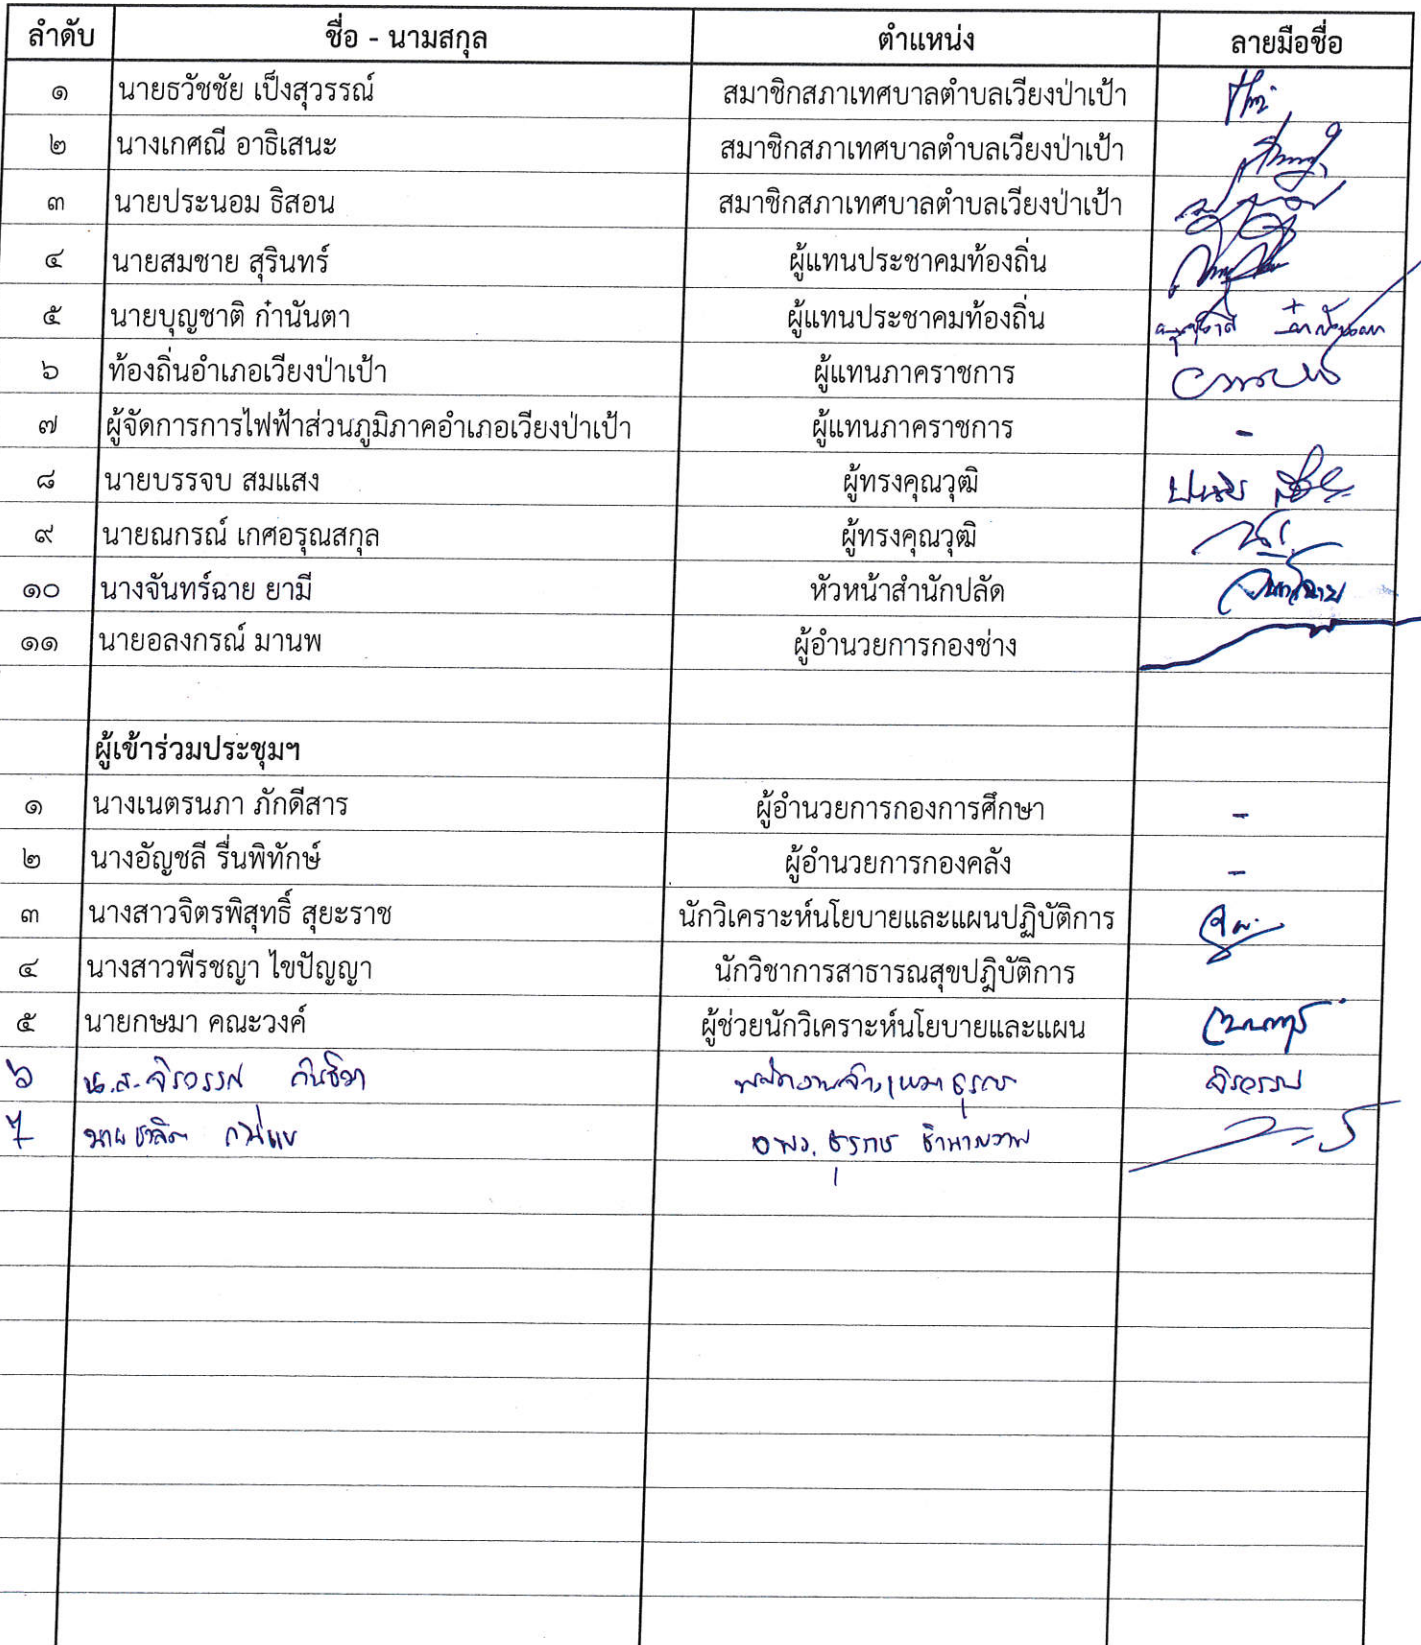 ลำดับ ชื่อ - นามสกุล ตำแหน่ง ลายมือชื่อ
๑ นายธวัชชัย เป็งสุวรรณ์ สมาชิกสภาเทศบาลตำบลเวียงป่าเป้า
๒ นางเกศณี อาธิเสนะ สมาชิกสภาเทศบาลตำบลเวียงป่าเป้า
๓ นายประนอม ธิสอน สมาชิกสภาเทศบาลตำบลเวียงป่าเป้า
๔ นายสมชาย สุรินทร์ ผู้แทนประชาคมท้องถิ่น
๕ นายบุญชาติ ก๋านันตา ผู้แทนประชาคมท้องถิ่น
๖ ท้องถิ่นอำเภอเวียงป่าเป้า ผู้แทนภาคราชการ
๗ ผู้จัดการการไฟฟ้าส่วนภูมิภาคอำเภอเวียงป่าเป้า ผู้แทนภาคราชการ -
๘ นายบรรจบ สมแสง ผู้ทรงคุณวุฒิ
๙ นายณกรณ์ เกศอรุณสกุล ผู้ทรงคุณวุฒิ
๑๐ นางจันทร์ฉาย ยามี หัวหน้าสำนักปลัด จันทร์ฉาย
๑๑ นายอลงกรณ์ มานพ ผู้อำนวยการกองช่าง
ผู้เข้าร่วมประชุมฯ
๑ นางเนตรนภา ภักดีสาร ผู้อำนวยการกองการศึกษา -
๒ นางอัญชลี รื่นพิทักษ์ ผู้อำนวยการกองคลัง -
๓ นางสาวจิตรพิสุทธิ์ สุยะราช นักวิเคราะห์นโยบายและแผนปฏิบัติการ
๔ นางสาวพีรชญา ไขปัญญา นักวิชาการสาธารณสุขปฏิบัติการ
๕ นายกษมา คณะวงค์ ผู้ช่วยนักวิเคราะห์นโยบายและแผน
๖ น.ส. จิรอรรถ
7 นาย จพง. ธุรการ ชำนาญงาน